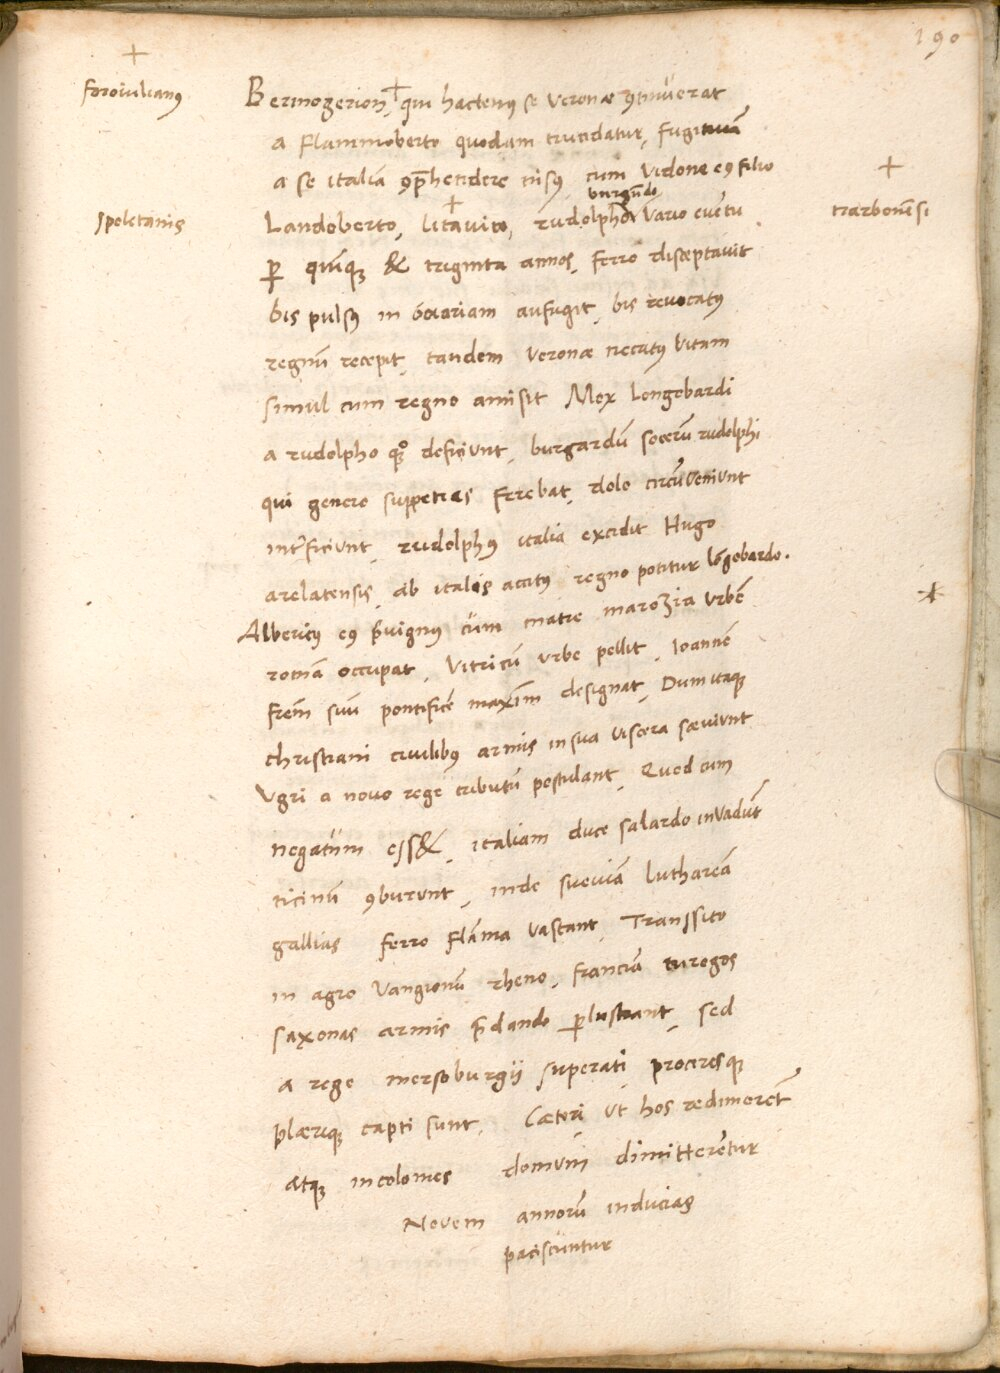 190
+
foroiulianus
Berengerion + qui hactenus se veronæ ꝯtinuerat
a Flammoberto quodam trucidatur, fugitiuā
a se italiā ꝯp̄hendere ausus cum Vidone eꝰ filio
+
burgūdo
spoletanis
Landoberto, litauico, rudolpho vario euētu
narbonēsi
ꝑ quīqꝫ & triginta annos, ferro disceptauit
bis pulsꝰ in boiariam aufugit, bis reuocatꝰ
regnū recepit, tandem Veronæ necatꝰ vitam
simul cum regno amisit Mox Longobardi
a rudolpho qꝫ deficiunt, burgardū socerū rudolphi
qui genero suppetias ferebat, dolo circūueniunt
interficiunt, rudolphꝰ italia excidit Hugo
arelatensis, ab italis accitꝰ regno potitur lōgobardo.
Albericꝰ eꝰ p̄uignꝰ cum matre marozia urbē
romā occupat, Vitricū urbe pellit, Ioannē
frēm suū pontificē maximū designat, Dum itaqꝫ
christiani ciuilibꝰ armis in sua viscera sæuiunt
Vgri a nouo rege tributū postulant, Quod cum
negatum ess&, italiam duce salardo inuadūt
ticinū ꝯburunt, inde sueuiā lutharēā
gallias ferro flāma vastant, Transsito
in agro Vangionū rheno, franciā turogos
saxonas armis p̄dando ꝑlustrant, sed
a rege mersoburgij superati proceresqꝫ
plæriqꝫ capti sunt, Cæteri, ut hos redimerēt
atqꝫ incolomes domum dimitterentur
Novem annorū inducias
paciscuntur